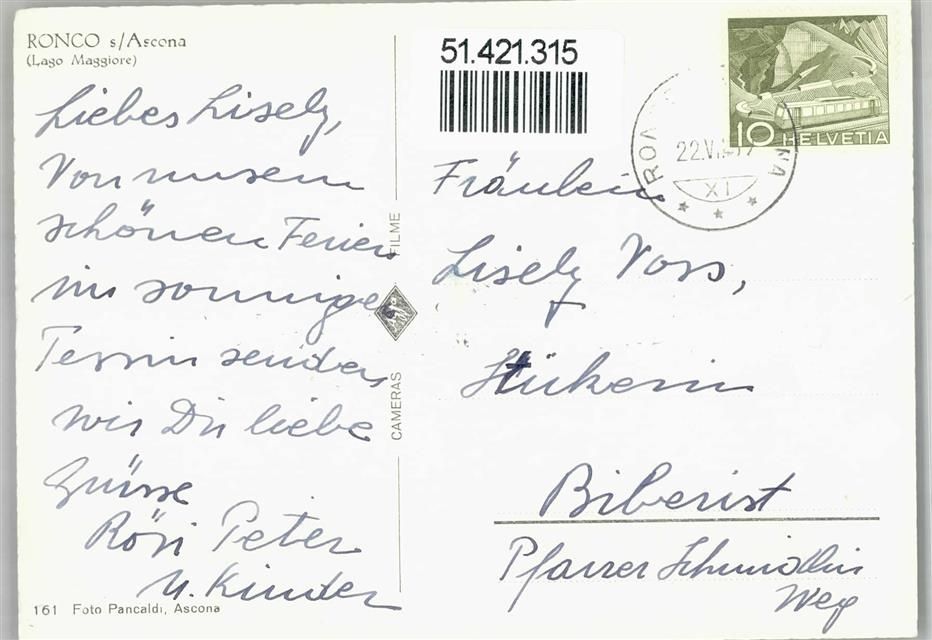 RONCO s/Ascona
(Lago Maggiore)
Liebes Lisely,
Von unsern
schönen Ferien
im sonnige
Tessin senden
wir Dir liebe
Grüsse
Rösi Peter
u. Kinder
161 Foto Pancaldi, Ascona
FILME
CAMERAS
51.421.315
10 HELVETIA
22.VI
XI
Fräulein
Lisely Voss,
Biberist
Pfarrer Schmidlin
Weg